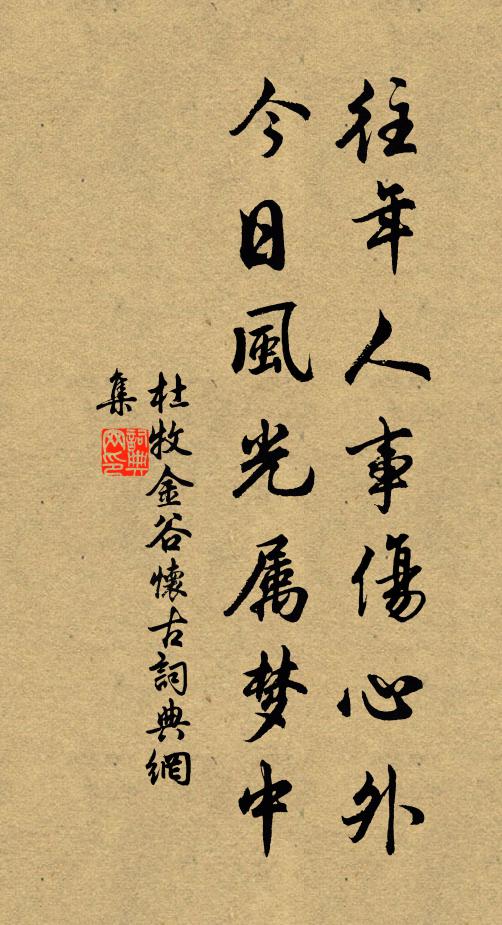 往年人事傷心外
今日風光属梦中
杜牧金谷懷古詞典網
集
詞典
网印